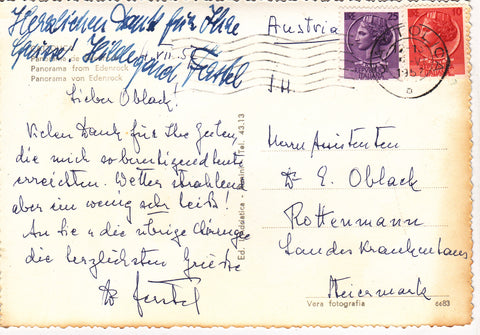 Herzlichen Dank für Ihre
Grüsse! Hildegund Fastel
Panorama from Edenrock
Panorama von Edenrock
Austria
Lieber Oblack!
Vielen Dank für Ihre Zeilen,
die mich so beruhigend heute
erreichten. Wetter strahlend
aber ein wenig sehr heiß!
An Sie u. die übrige
die herzlichsten Grüße
Dr
Ed. Adriatica - Rimini - Tel. 43.13
25
Herrn Assistenten
Dr E. Oblack
Rottenmann
Landes Krankenhaus
Steiermark
Vera fotografia
6683